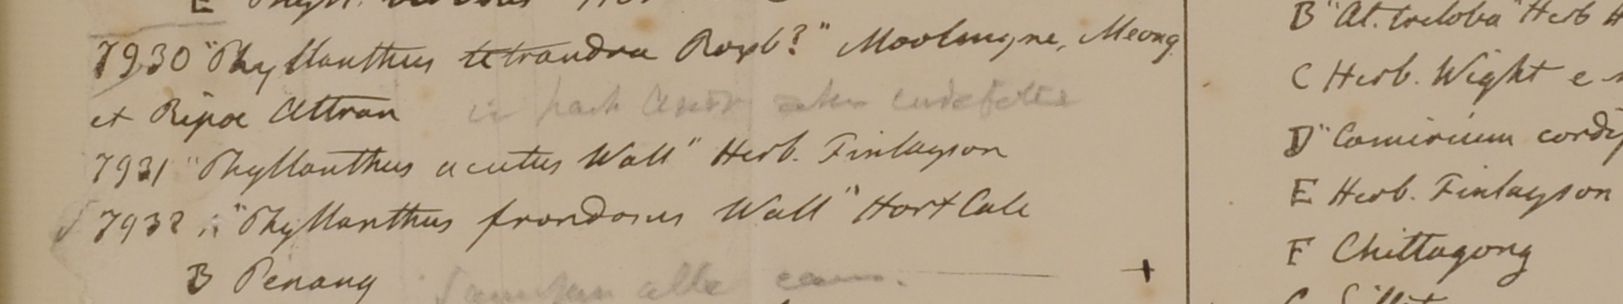 7930 "Phyllanthus tetrandra Roxb?" Moolmyne, Meong
et Ripoe Attran
7931 "Phyllanthus acutus Wall" Herb. Finlayson
7932 "Phyllanthus frondosus Wall" Hort Calc
B Penang +
B "At. triloba" Herb
C Herb. Wight e
D "Camirium
E Herb. Finlayson
F Chittagong